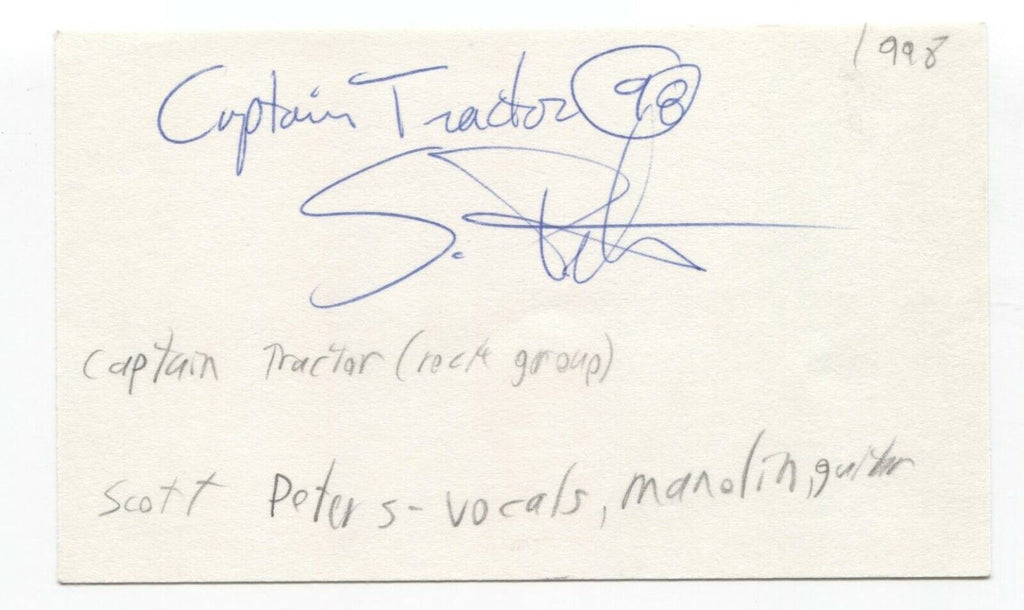 1998
Captain Tractor 98
S. Pet
Captain Tractor (rock group)
Scott Peters - vocals, manolin, guitar